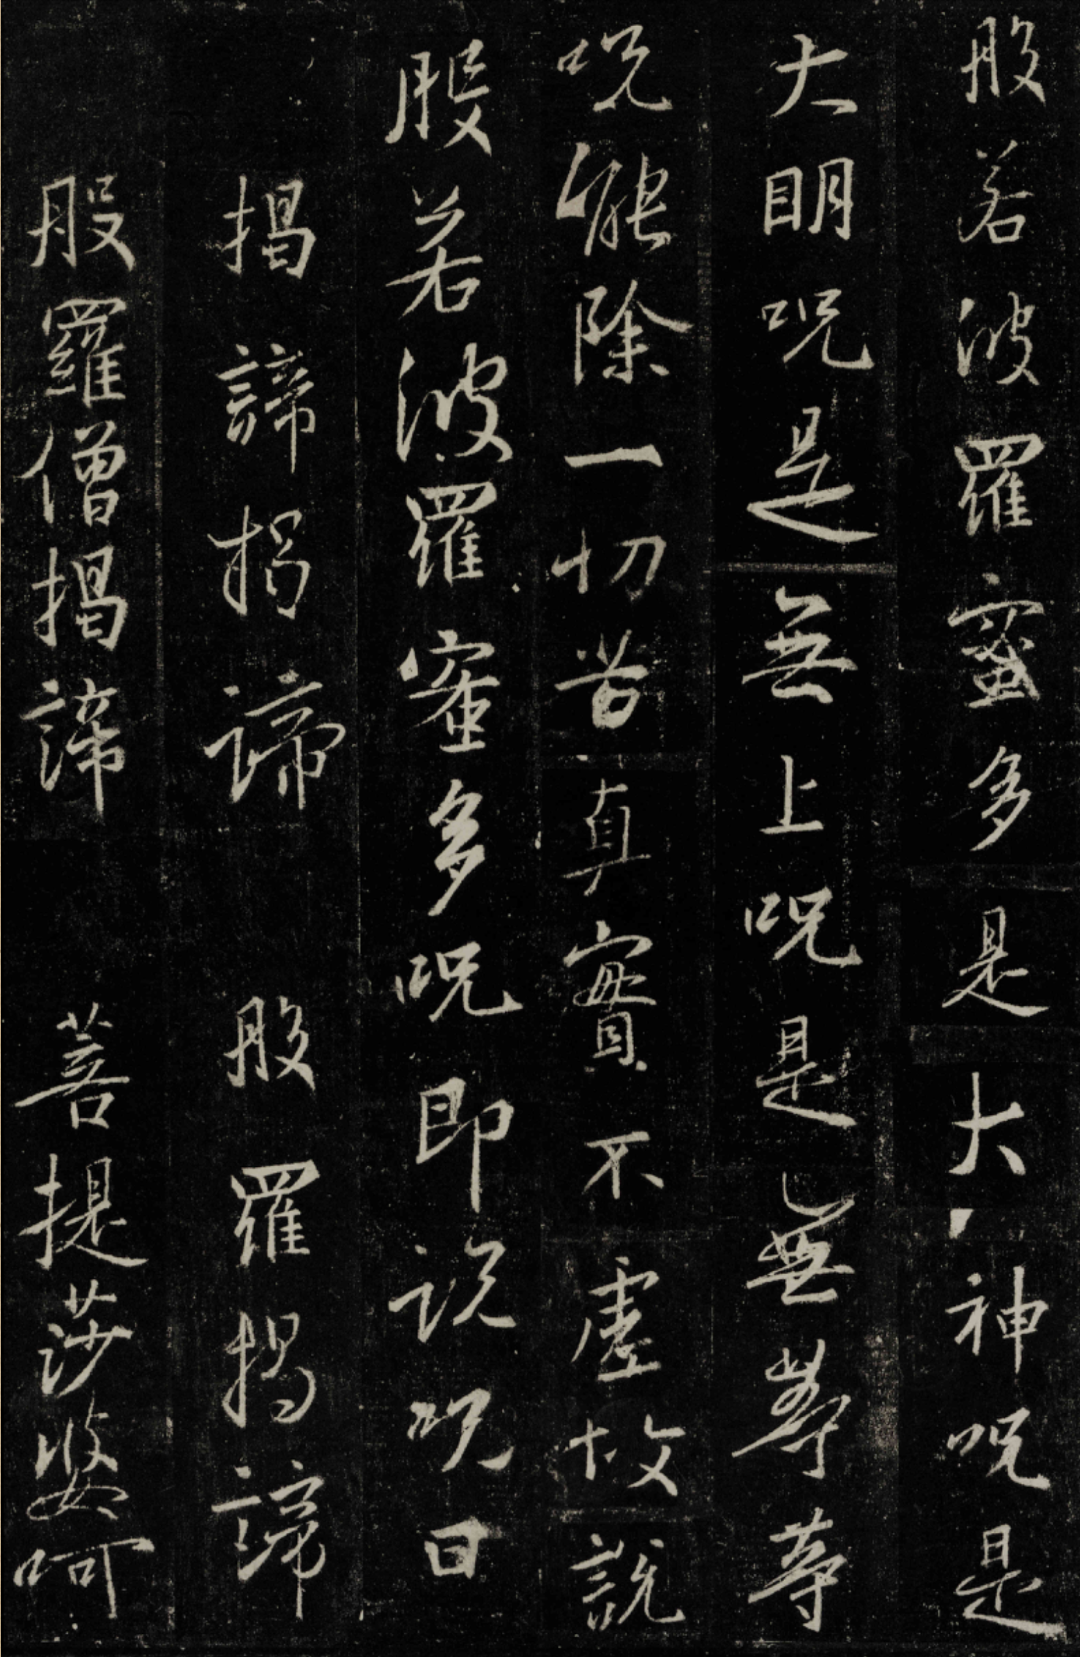 般若波羅蜜多是大神呪是
大明呪是無上呪是無等等
呪能除一切苦真實不虛故說
般若波羅蜜多呪即說呪曰
揭諦揭諦 般羅揭諦
般羅僧揭諦 菩提莎婆呵